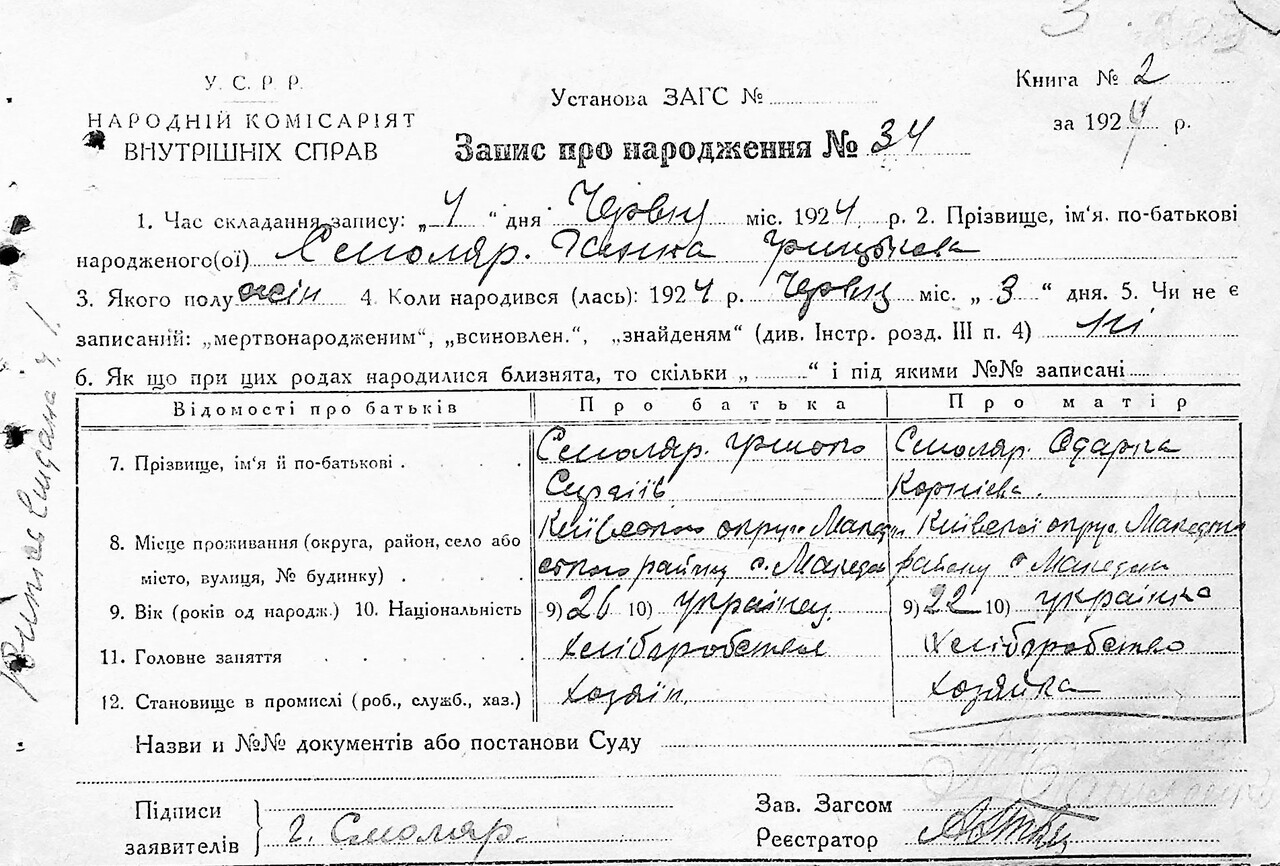 У. С. Р. Р.
НАРОДНІЙ КОМІСАРІЯТ
ВНУТРІШНІХ СПРАВ
Установа ЗАГС №
Книга № 2
за 1924 р.
Запис про народження № 34
1. Час складання запису: „4“ дня Червня міс. 1924 р. 2. Прізвище, ім'я. по-батькові
народженого(ої) Смоляр. Ганка Грицькова
3. Якого полу жін 4. Коли народився (лась): 1924 р. Червня міс. „3“ дня. 5. Чи не є
записаний: „мертвонародженим“, „всиновлен.“, „знайденям“ (див. Інстр. розд. III п. 4) Ні
6. Як що при цих родах народилися близнята, то скільки „ “ і під якими №№ записані
Відомості про батьків Про батька Про матір
7. Прізвище, ім'я й по-батькові Смоляр. Смоляр. Одарка
Корніева.
8. Місце проживання (округа, район, село або
місто, вулиця, № будинку)
Київского округи Македон Київскої округ. Македон
ского району с. Македон району с Македони
9. Вік (років од народж.) 10. Національність 9) 26 10) українец. 9) 22 10) українка
11. Головне заняття Хліборобством Хліборобство
12. Становище в промислі (роб., служб., хаз.) Хозяїн Хозяйка
Назви и №№ документів або постанови Суду
Підписи
заявителів
Г. Смоляр.
Зав. Загсом
Реєстратор